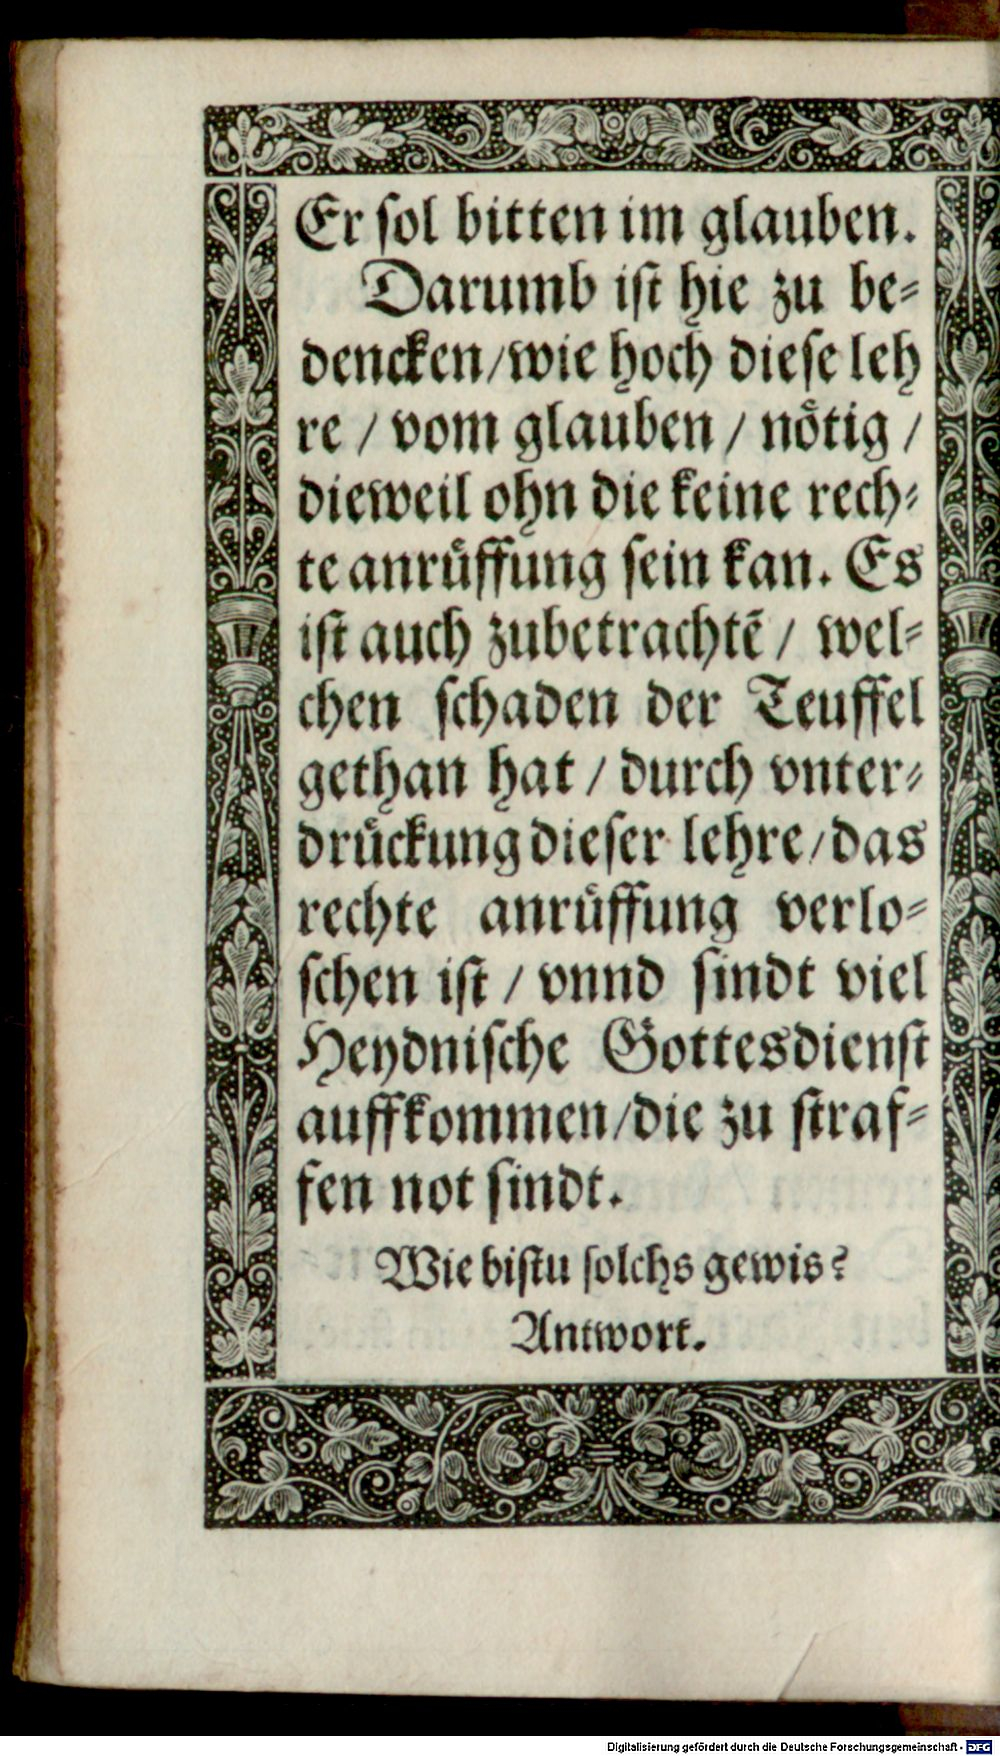 Er ſol bitten im glauben.
Darumb iſt hie zu be⸗
dencken/wie hoch dieſe leh
re / vom glauben / nötig /
dieweil ohn die keine rech⸗
te anrüffung ſein kan. Es
iſt auch zubetrachtē / wel⸗
chen ſchaden der Teuffel
gethan hat / durch vnter⸗
drückung dieſer lehre/das
rechte anrüffung verlo⸗
ſchen iſt / vnnd ſindt viel
Heydniſche Gottesdienſt
auffkommen/die zu ſtraf⸗
fen not ſindt.
Wie biſtu ſolchs gewis?
Antwort.
Digitalisierung gefördert durch die Deutsche Forschungsgemeinschaft - DFG